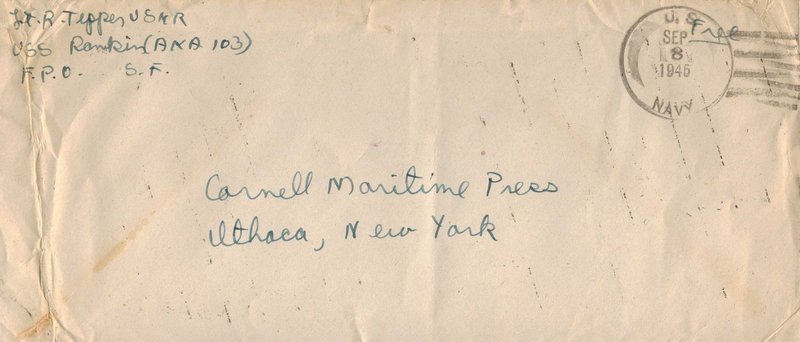 Lt. R. Tepper USNR
USS Rankin (AKA 103)
F.P.O. S.F.
U.S.
SEP
8
1945
NAVY
Free
Cornell Maritime Press
Ithaca, New York